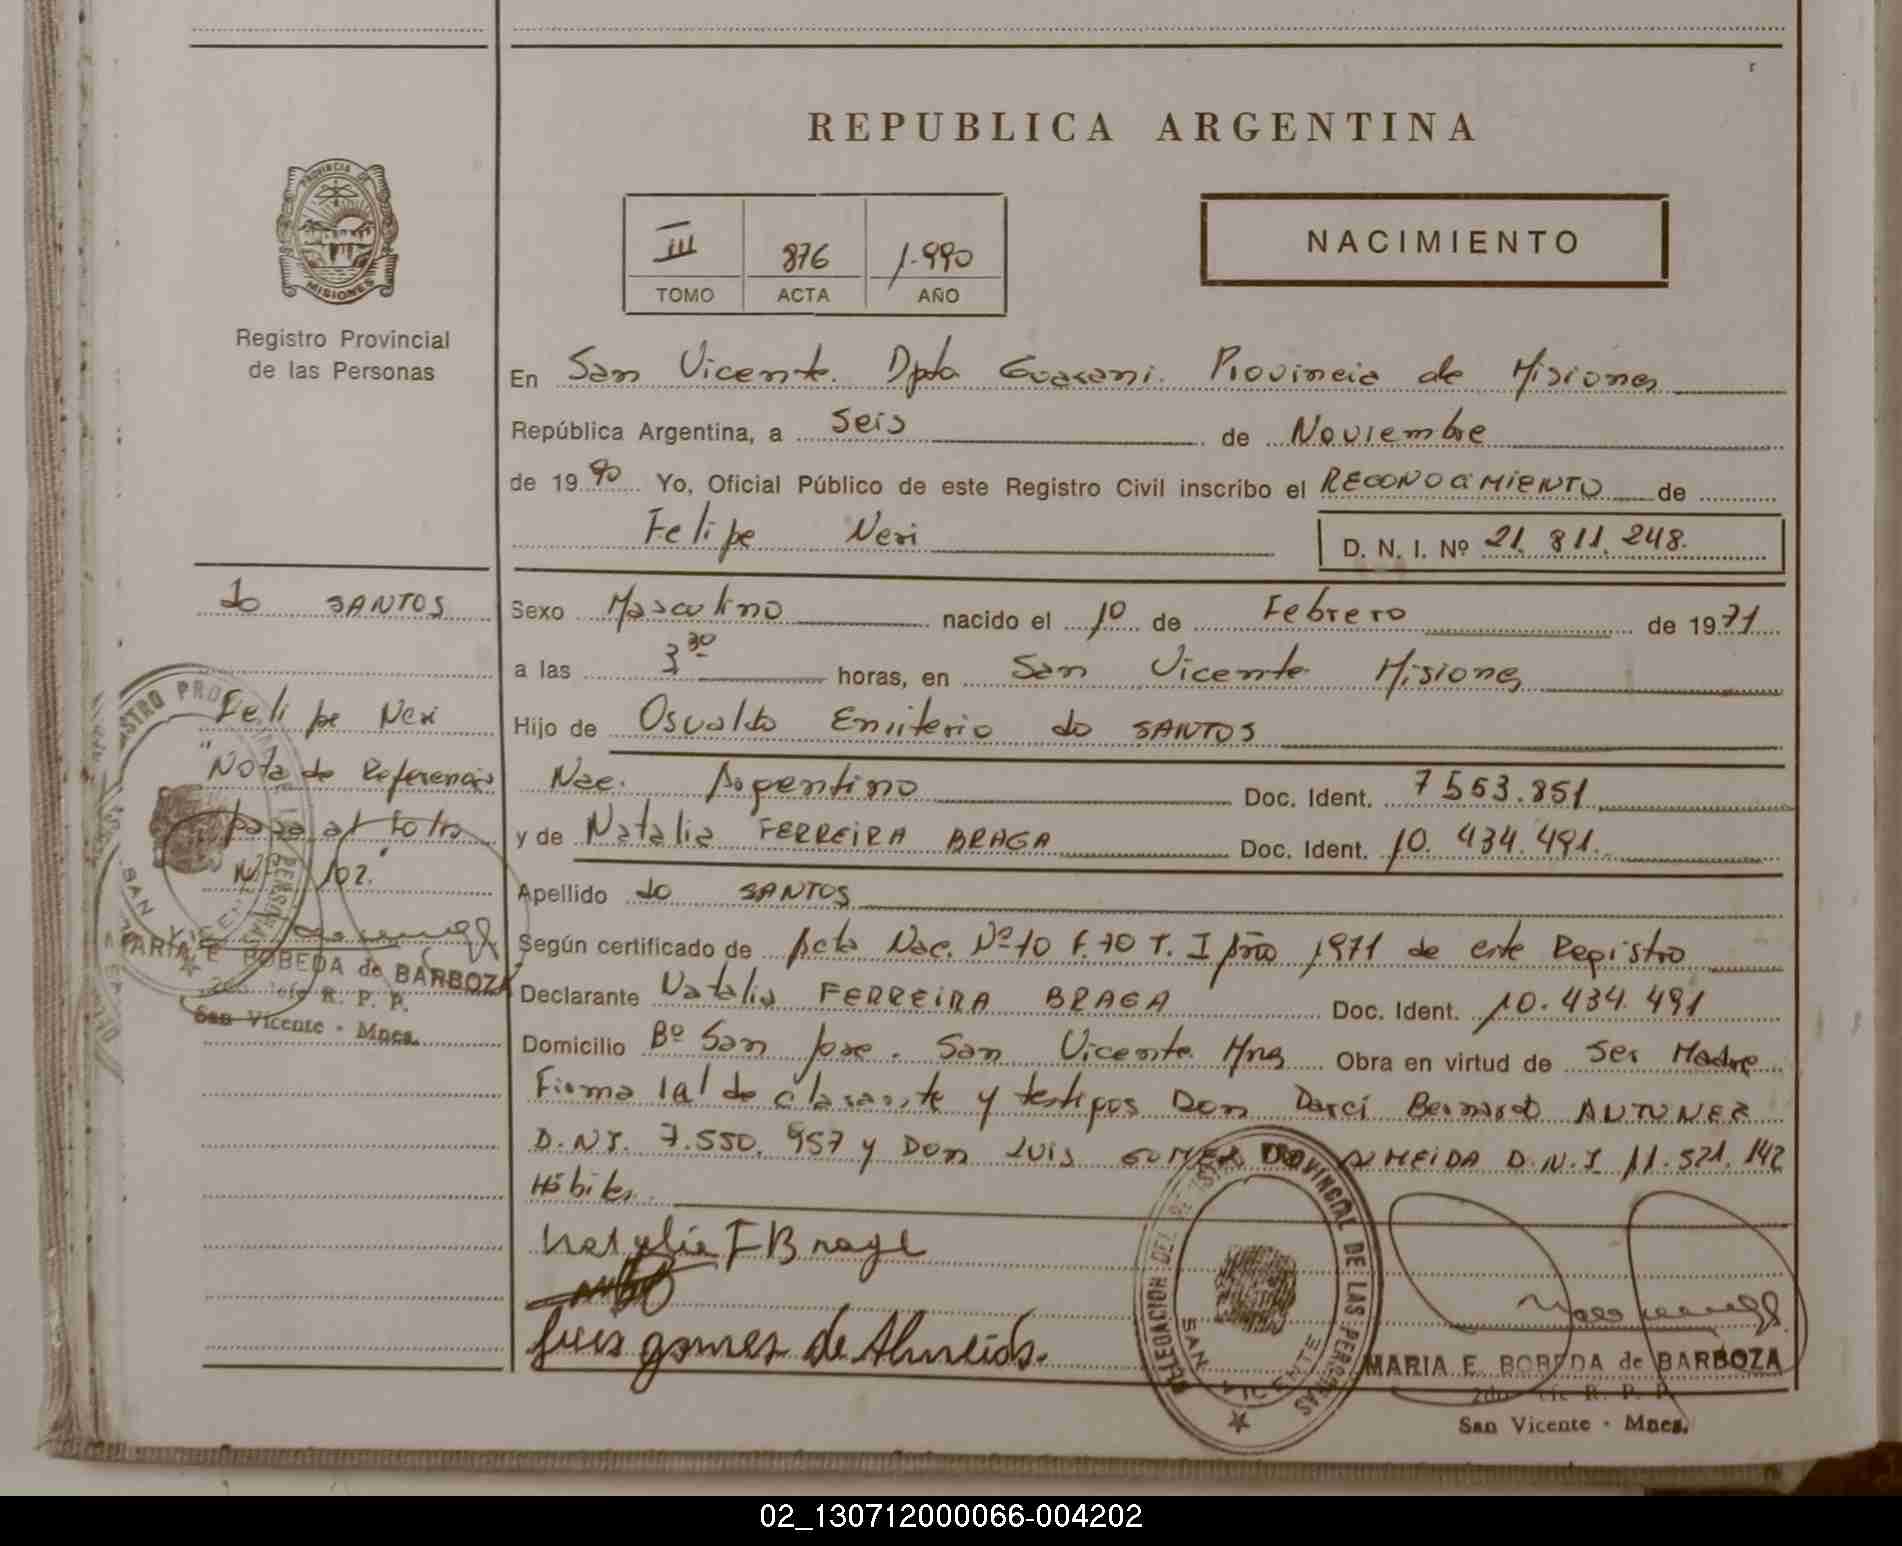 REPUBLICA ARGENTINA
PROVINCIA DE
MISIONES
Registro Provincial
de las Personas
III 876 1.990
TOMO ACTA AÑO
NACIMIENTO
En San Vicente. Dpto Guarani. Provincia de Misiones
República Argentina, a Seis de Noviembre
de 1990 Yo, Oficial Público de este Registro Civil inscribo el RECONOCIMIENTO de
Felipe Neri D. N. I. Nº 21.811.248.
Sexo Masculino nacido el 10 de Febrero de 1971
a las 3 30 horas, en San Vicente Misiones
Hijo de Osvaldo Emiterio do SANTOS
Nac. Argentino Doc. Ident. 7553.851
y de Natalia FERREIRA BRAGA Doc. Ident. 10.434.491.
Apellido do SANTOS
Según certificado de Acta Nac. Nº 10 F. 70 T. I Año 1971 de este Registro
Declarante Natalia FERREIRA BRAGA Doc. Ident. 10.434.491
Domicilio Bº San Jose. San Vicente Mns Obra en virtud de Ser Madre
Firma la declarante y testigos Don Darci Bernardo ANTUNEZ
D.N.I. 7.550.957 y Don Luis GOMES ALMEIDA D.N.I 11.521.142
Hábiles.
Natalia F Braga
Luis gomes de Almeida.
DELEGACION DEL REGISTRO PROVINCIAL DE LAS PERSONAS
SAN VICENTE
MARIA E. BOBEDA de BARBOZA
2do Jefe R. P. P.
San Vicente - Mnes.
do SANTOS
Felipe Neri
"Nota de Referencia
pasa al folio
Nº 102."
MARIA E BOBEDA de BARBOZA
2do Jefe R. P. P.
San Vicente - Mnes.
02_130712000066-004202